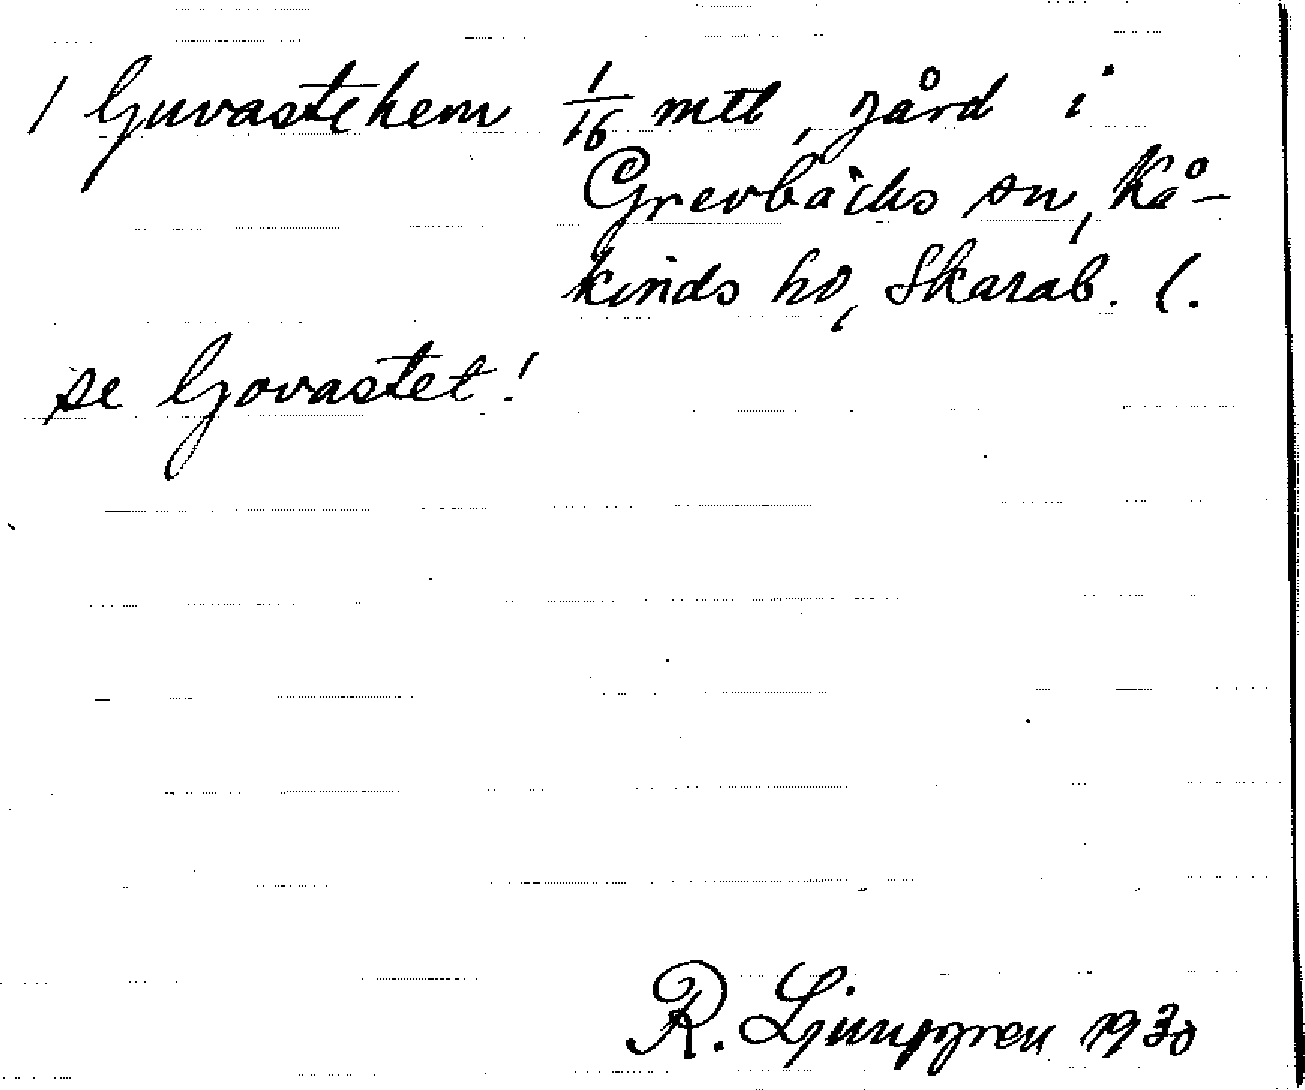 / Guvastehem 1/16 mtl, gård i
Grevbäcks sn, Kå-
kinds hd, Skarab. l.
se Govastet!
R. Ljunggren 1930